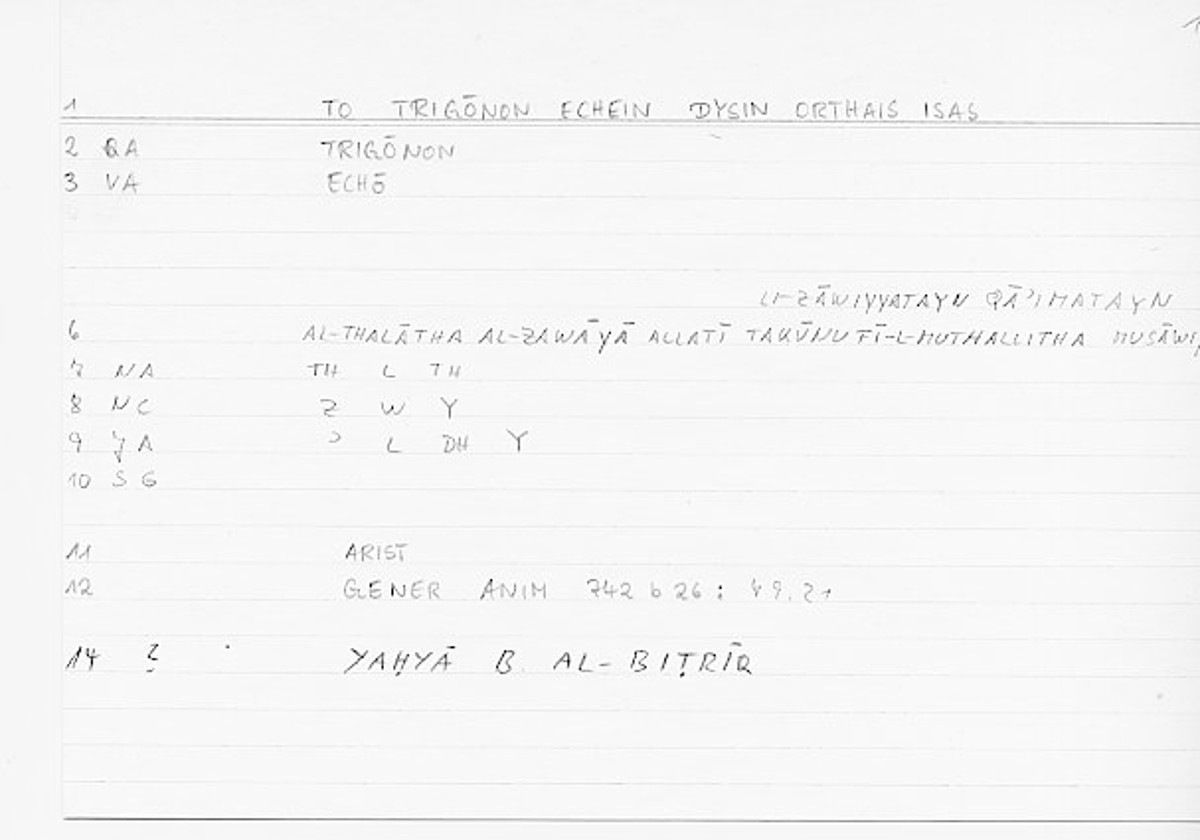 1
1 TO TRIGŌNON ECHEIN DYSIN ORTHAIS ISAS
2 QA TRIGŌNON
3 VA ECHŌ
LI-ZĀWIYYATAYN QĀʾIMATAYN
6 AL-THALĀTHA AL-ZAWĀYĀ ALLATĪ TAKŪNU FĪ-L-MUTHALLITHA MUSĀWI
7 NA TH L TH
8 NC Z W Y
9 JA ʾ L DH Y
10 SG
11 ARIST
12 GENER ANIM 742 b 26: 49.21
14 YAḤYĀ B. AL-BIṬRĪQ